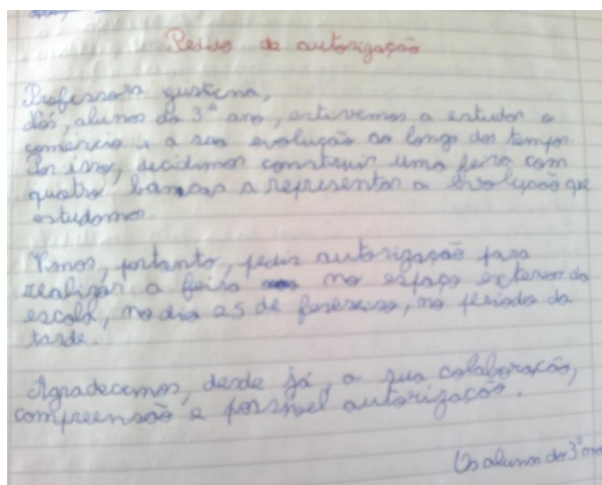 Pedido de autorização
Professora Justina,
Nós, alunos do 3º ano, estivemos a estudar o
comércio e a sua evolução ao longo dos tempos.
Por isso, decidimos construir uma feira com
quatro bancas a representar a evolução que
estudamos.
Vimos, portanto, pedir autorização para
realizar a feira no espaço exterior da
escola, no dia 25 de fevereiro, no período da
tarde.
Agradecemos, desde já, a sua colaboração,
compreensão e possível autorização.
Os alunos do 3º ano